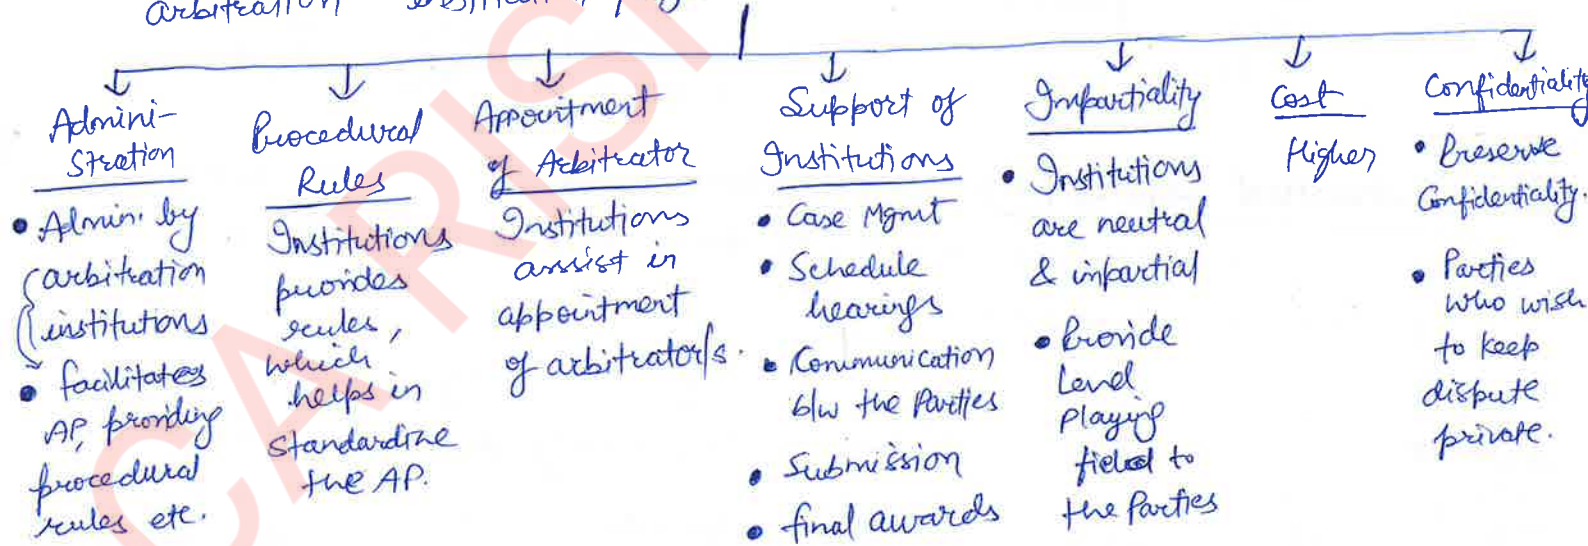 arbitration
Admini-
stration
• Admin. by
arbitration
institutions
• facilitates
AP, providing
procedural
rules etc.
Procedural
Rules
Institutions
provides
rules,
which
helps in
standardize
the AP.
Appointment
of Arbitrator
Institutions
assist in
appointment
of arbitrator/s.
Support of
Institutions
• Case Mgmt
• Schedule
hearings
• Communication
b/w the Parties
• Submission
• final awards
Impartiality
• Institutions
are neutral
& impartial
• Provide
Level
Playing
field to
the Parties
Cost
Higher
Confidentiality
• Preserve
Confidentiality.
• Parties
who wish
to keep
dispute
private.
CA RISH